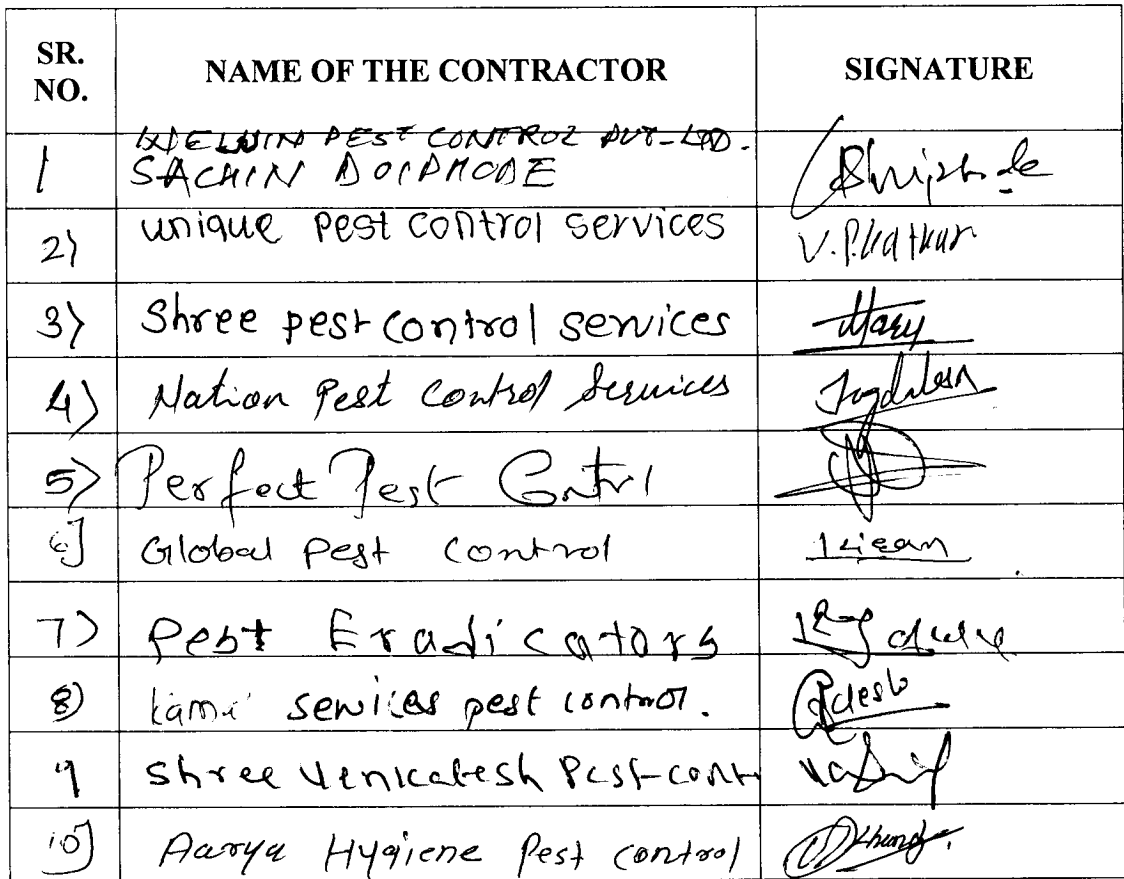 SR. NO. NAME OF THE CONTRACTOR SIGNATURE
PEST CONTROL PVT-LTD.
1 SACHIN
2) unique pest control services
3) Shree pest control services Mary
4) Nation Pest Control Services
5) Perfect Pest Control
6] Global Pest Control Kiean
7) Pest Eradicators
8) services pest control.
9 Shree Venkatesh Pest-cont
10] Aarya Hygiene Pest control